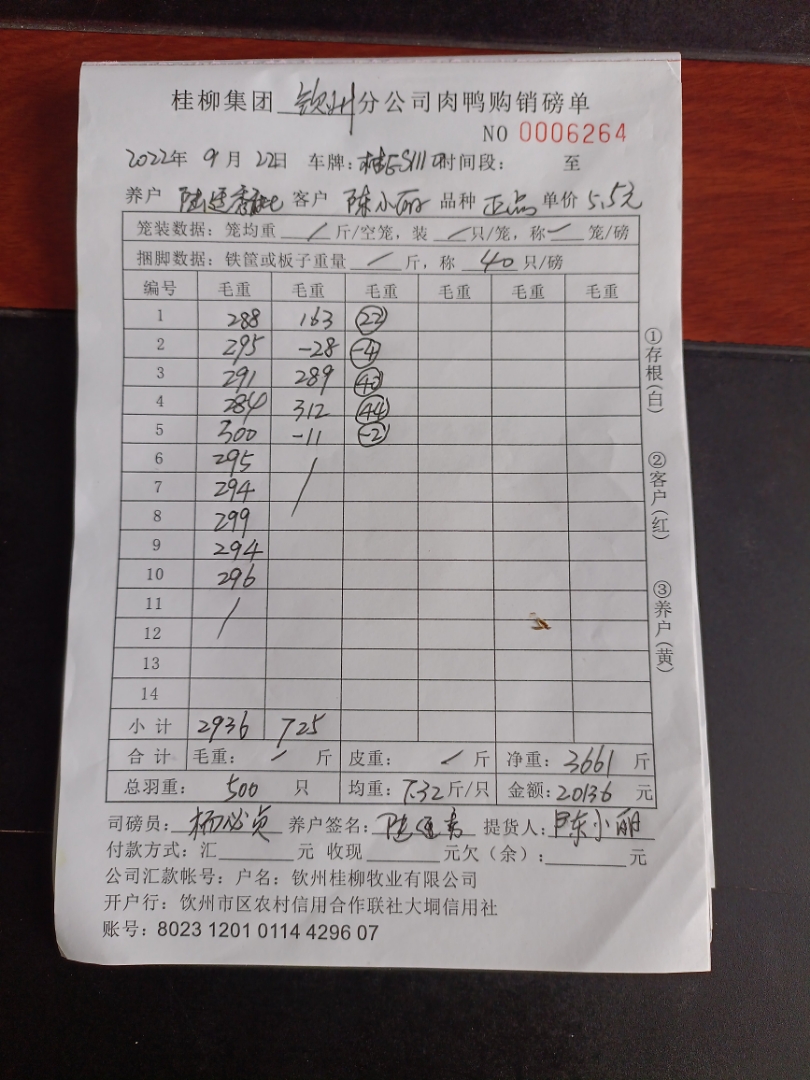 桂柳集团 钦州 分公司肉鸭购销磅单
NO 0006264
2022年 9月 22日 车牌: 时间段: 至
养户 客户 陈小丽 品种 正品 单价 5.5元
笼装数据: 笼均重 / 斤/空笼, 装 / 只/笼, 称 / 笼/磅
捆脚数据: 铁筐或板子重量 / 斤, 称 40 只/磅
编号 毛重 毛重 毛重 毛重 毛重 毛重
1 288 163 22
2 295 -28 -4
3 291 289 40
4 284 312 44
5 300 -11 -2
6 295 /
7 294
8 299
9 294
10 296
11 /
12
13
14
小计 2936 725
合计 毛重: / 斤 皮重: / 斤 净重: 3661 斤
总羽重: 500 只 均重: 7.32斤/只 金额: 20136 元
司磅员: 杨必贞 养户签名: 提货人: 陈小丽
付款方式: 汇 元 收现 元欠(余): 元
公司汇款帐号: 户名: 钦州桂柳牧业有限公司
开户行: 钦州市区农村信用合作联社大垌信用社
账号: 8023 1201 0114 4296 07
①存根(白)
②客户(红)
③养户(黄)